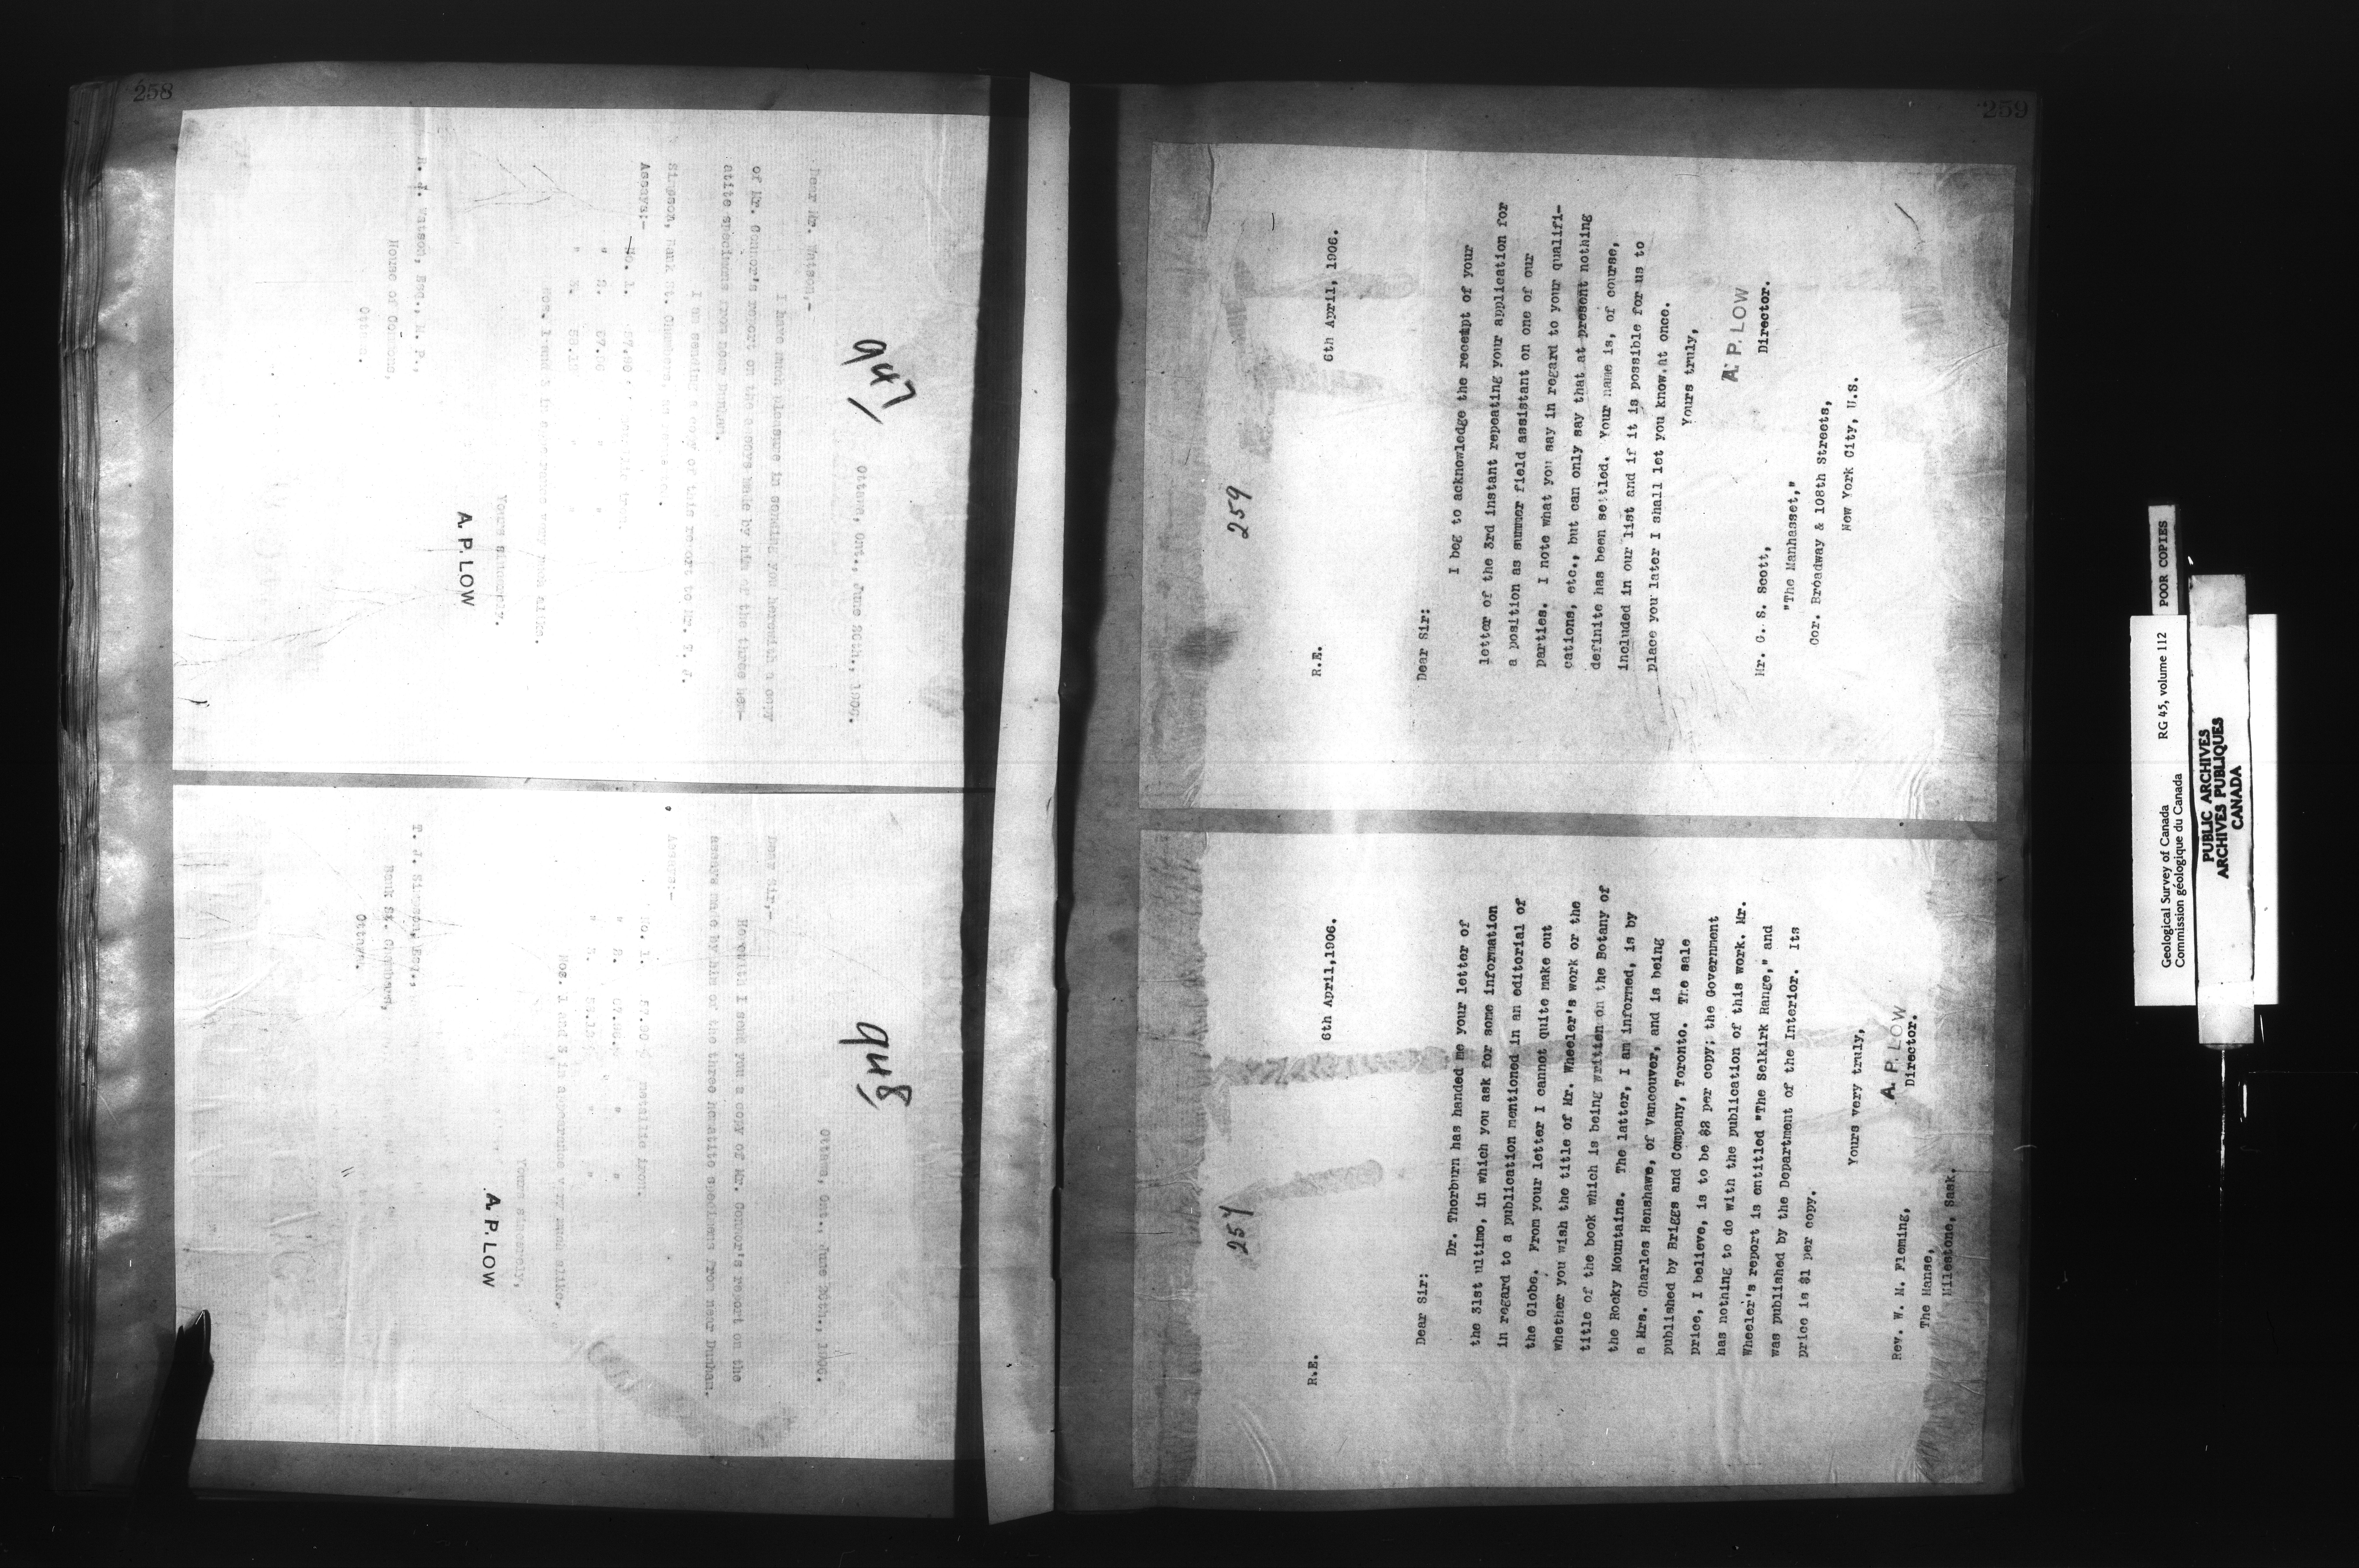 258
947
Ottawa, Ont., June 20th., 1906.
Dear Mr. Watson,-
I have much pleasure in sending you herewith a copy
of Mr. Connor's report on the assays made by him of the three hem-
atite specimens from near Dunham.
I am sending a copy of this report to Mr. T. J.
Simpson, Bank St. Chambers,
Assays:-
No. 1.
" 2.
" 3. 58.12 " "
Nos. 1 and 2 in appearance very much alike.
Yours sincerely,
A. P. LOW
R. J. Watson, Esq., M. P.,
House of Commons,
Ottawa.
948
Ottawa, Ont., June 20th., 1906.
Dear Sir,-
Herewith I send you a copy of Mr. Connor's report on the
assays made by him of the three hematite specimens from near Dunham.
Assays:-
No. 1. metallic iron.
" 2. " "
" 3. " "
Nos. 1 and 2 in appearance very much alike.
Yours sincerely,
A. P. LOW
T. J. Simpson, Esq.,
Bank St. Chambers,
Ottawa.
259
259
R.E.
6th April, 1906.
Dear Sir:
I beg to acknowledge the receipt of your
letter of the 3rd instant repeating your application for
a position as summer field assistant on one of our
parties. I note what you say in regard to your qualifi-
cations, etc., but can only say that at present nothing
definite has been settled. Your name is, of course,
included in our list and if it is possible for us to
place you later I shall let you know at once.
Yours truly,
A. P. LOW
Director.
Mr. G. S. Scott,
"The Manhasset,"
Cor. Broadway & 108th Streets,
New York City, U.S.
257
R.E.
6th April, 1906.
Dear Sir:
Dr. Thorburn has handed me your letter of
the 31st ultimo, in which you ask for some information
in regard to a publication mentioned in an editorial of
the Globe. From your letter I cannot quite make out
whether you wish the title of Mr. Wheeler's work or the
title of the book which is being written on the Botany of
the Rocky Mountains. The latter, I am informed, is by
a Mrs. Charles Henshawe, of Vancouver, and is being
published by Briggs and Company, Toronto. The sale
price, I believe, is to be $2 per copy; the Government
has nothing to do with the publication of this work. Mr.
Wheeler's report is entitled "The Selkirk Range," and
was published by the Department of the Interior. Its
price is $1 per copy.
Yours very truly,
A. P. LOW
Director.
Rev. W. M. Fleming,
The Manse,
Milestone, Sask.
POOR COPIES
Geological Survey of Canada RG 45, volume 112
Commission géologique du Canada
PUBLIC ARCHIVES
ARCHIVES PUBLIQUES
CANADA